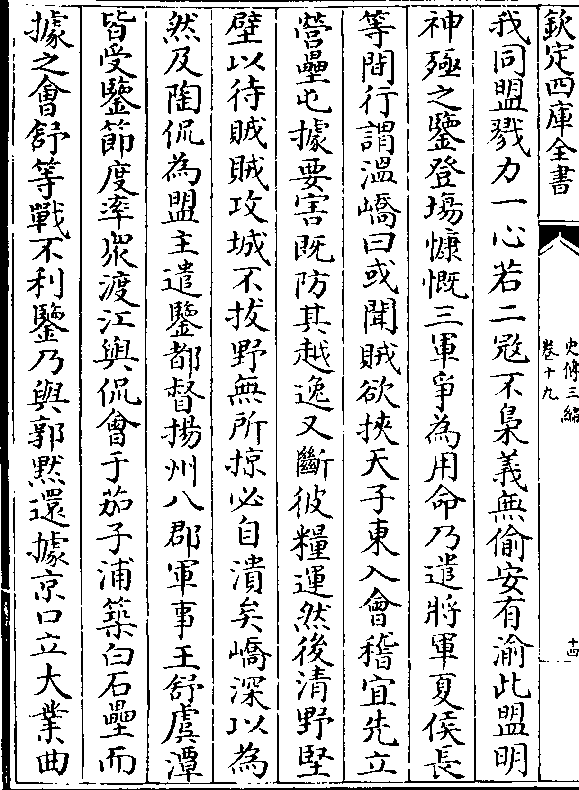 欽定四庫全書
史傳三編
卷十九
十四
我同盟戮力一心若二冦不梟義無偷安有渝此盟明
神殛之鑒登場慷慨三軍爭為用命乃遣將軍夏侯長
等間行謂溫嶠曰或聞賊欲挾天子東入會稽宜先立
營壘屯據要害既防其越逸又斷彼糧運然後清野堅
壁以待賊賊攻城不拔野無所掠必自潰矣嶠深以為
然及陶侃為盟主遣鑒都督揚州八郡軍事王舒虞潭
皆受鑒節度率衆渡江與侃會于茄子浦築白石壘而
據之會舒等戰不利鑒乃與郭黙還據京口立大業曲